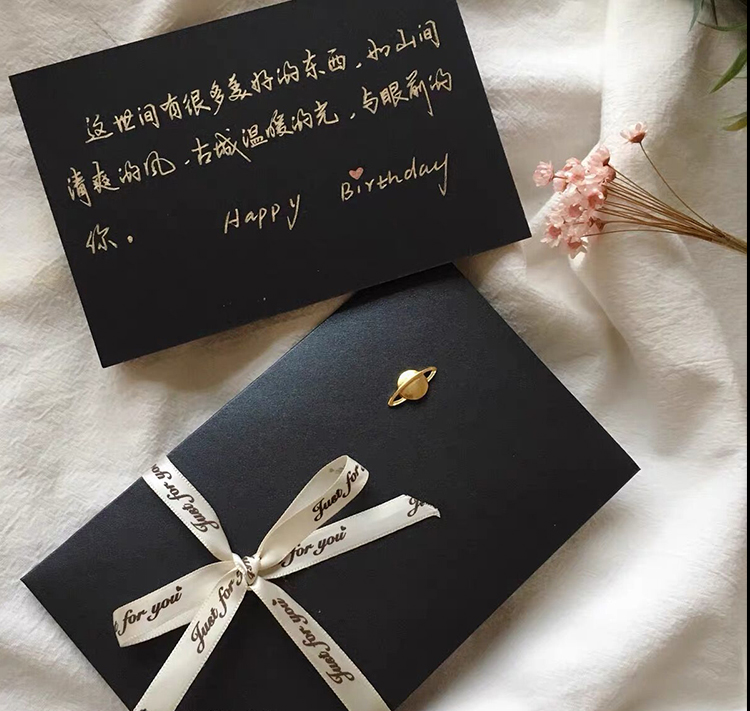 这世间有很多美好的东西、如山间
清爽的风、古城温暖的光、与眼前的
你。
Happy Birthday
Just for you
Just for you
Just for
for you
for you
Just for you
Just for you